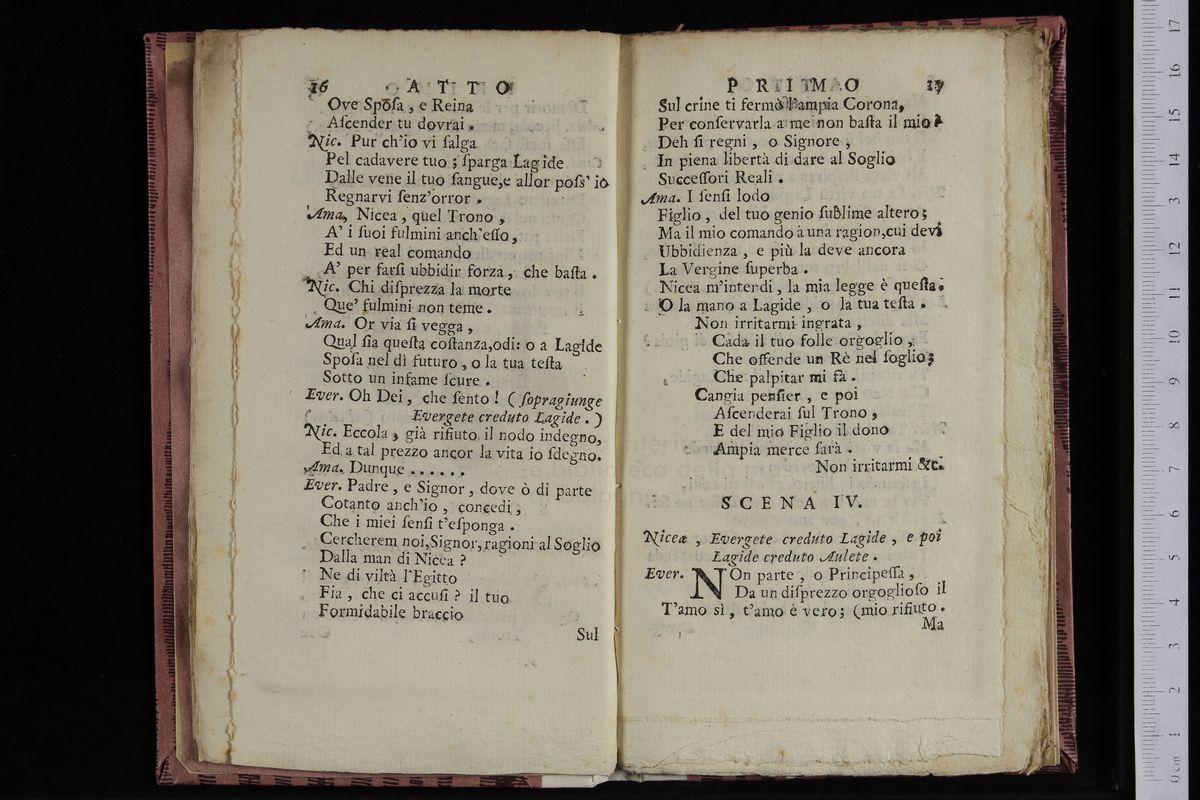 16 ATTO
Ove Spoſa, e Reina
Aſcender tu dovrai.
Nic. Pur ch'io vi ſalga
Pel cadavere tuo; ſparga Lagide
Dalle vene il tuo ſangue,e allor poſs' io
Regnarvi ſenz'orror.
Ama, Nicea, quel Trono,
A' i ſuoi fulmini anch'eſſo,
Ed un real comando
A' per farſi ubbidir forza, che baſta.
Nic. Chi diſprezza la morte
Que' fulmini non teme.
Ama. Or via ſi vegga,
Qual ſia queſta coſtanza,odi: o a Lagide
Spoſa nel dì futuro, o la tua teſta
Sotto un infame ſcure.
Ever. Oh Dei, che ſento! (ſopragiunge
Evergete creduto Lagide.)
Nic. Eccola, già rifiuto il nodo indegno,
Ed a tal prezzo ancor la vita io ſdegno.
Ama. Dunque ......
Ever. Padre, e Signor, dove ò di parte
Cotanto anch'io, concedi,
Che i miei ſenſi t'eſponga.
Cercherem noi,Signor,ragioni al Soglio
Dalla man di Nicea?
Ne di viltà l'Egitto
Fia, che ci accuſi? il tuo
Formidabile braccio
Sul
PRTIMAO 17
Sul crine ti fermò l'ampia Corona,
Per conſervarla a me non baſta il mio?
Deh ſi regni, o Signore,
In piena libertà di dare al Soglio
Succeſſori Reali.
Ama. I ſenſi lodo
Figlio, del tuo genio ſublime altero;
Ma il mio comando à una ragion,cui devi
Ubbidienza, e più la deve ancora
La Vergine ſuperba.
Nicea m'interdi, la mia legge è queſta.
O la mano a Lagide, o la tua teſta.
Non irritarmi ingrata,
Cada il tuo folle orgoglio,
Che offende un Rè nel ſoglio;
Che palpitar mi fà.
Cangia penſier, e poi
Aſcenderai ſul Trono,
E del mio Figlio il dono
Ampia merce ſarà.
Non irritarmi &c.
SCENA IV.
Nicea, Evergete creduto Lagide, e poi
Lagide creduto Aulete.
Ever. NOn parte, o Principeſſa,
Da un diſprezzo orgoglioſo il
T'amo sì, t'amo è vero; (mio rifiuto.
Ma
0 cm 1 2 3 4 5 6 7 8 9 10 11 12 13 14 15 16 17